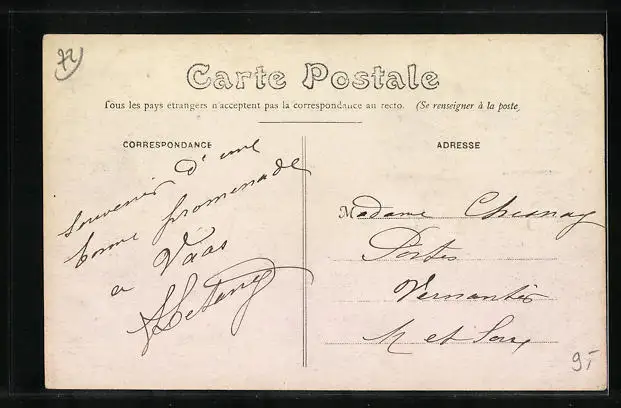 72
Carte Postale
Tous les pays étrangers n'acceptent pas la correspondance au recto. (Se renseigner à la poste)
CORRESPONDANCE
souvenir d'une
bonne promenade
a Vaas
ADRESSE
Madame Chesnay
Postes
Vernantes
M et Loire
9,-